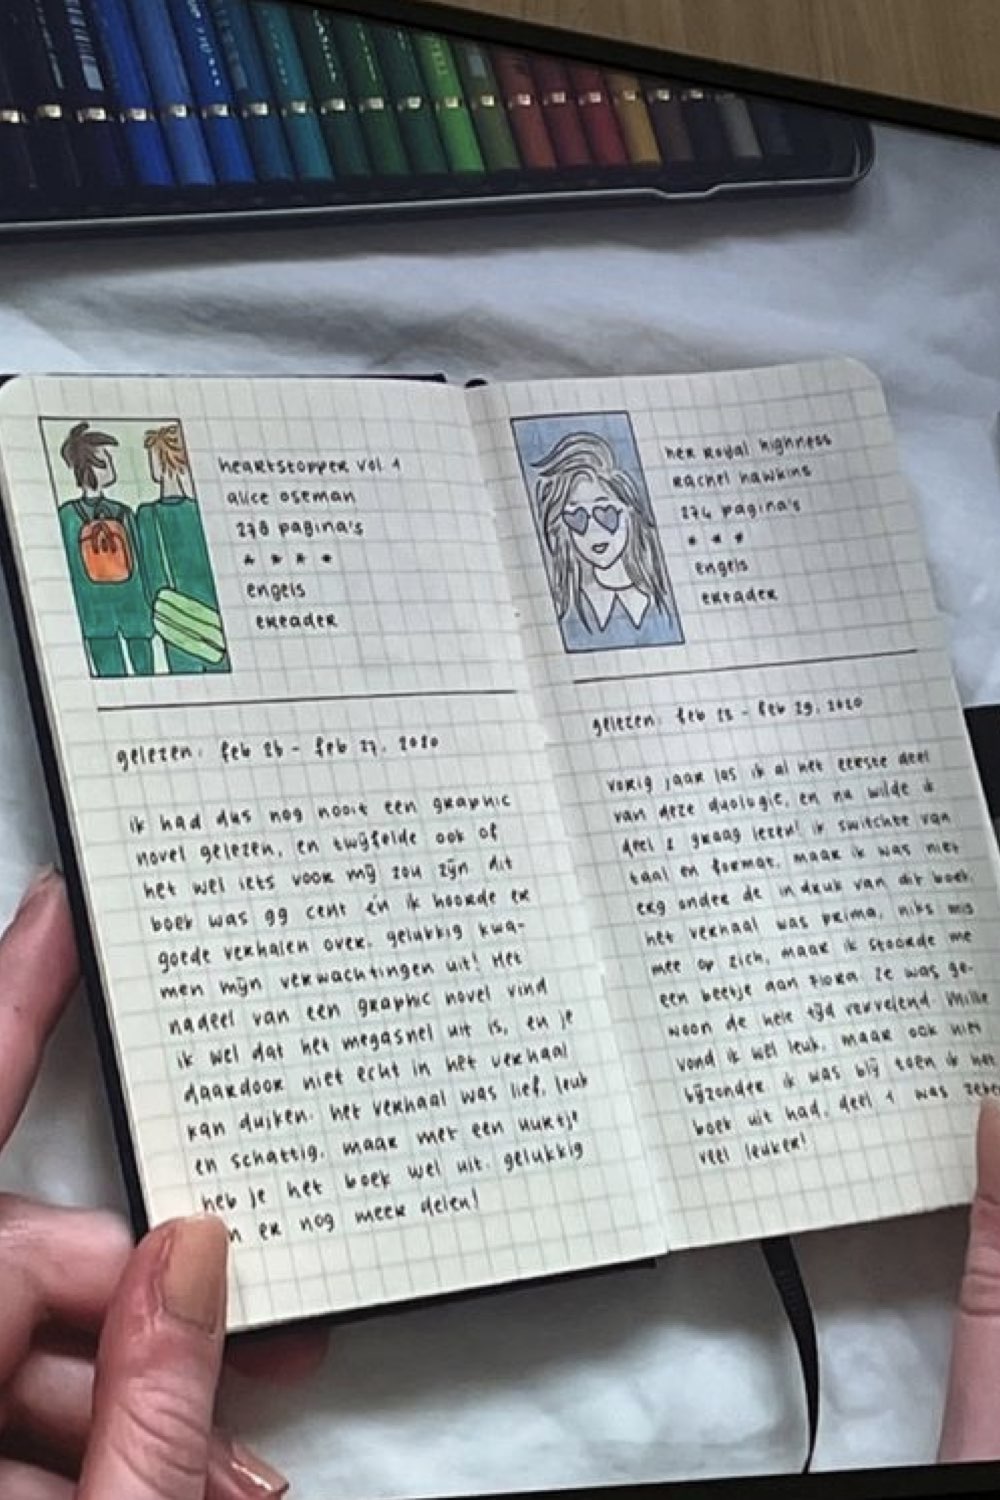 heartstopper vol 1
alice oseman
278 pagina's
* * * *
engels
ereader
gelezen: feb 26 - feb 27, 2020
ik had dus nog nooit een graphic
novel gelezen, en twijfelde ook of
het wel iets voor mij zou zijn dit
boek was 99 cent én ik hoorde er
goede verhalen over. gelukkig kwa-
men mijn verwachtingen uit! Het
nadeel van een graphic novel vind
ik wel dat het megasnel uit is, en je
daardoor niet echt in het verhaal
kan duiken. het verhaal was lief, leuk
en schattig, maar met een uurtje
heb je het boek wel uit. gelukkig
er nog meer delen!
her royal highness
rachel hawkins
274 pagina's
* * *
engels
ereader
gelezen: feb 23 - feb 29, 2020
vorig jaar las ik al het eerste deel
van deze duologie, en nu wilde ik
deel 2 graag lezen! ik switchte van
taal en format, maar ik was niet
erg onder de indruk van dit boek.
het verhaal was prima, niks mis
mee op zich, maar ik stoorde me
een beetje aan flora ze was ge-
woon de hele tijd vervelend. Millie
vond ik wel leuk, maar ook niet
bijzonder ik was blij toen ik het
boek uit had, deel 1 was zeker
veel leuker!